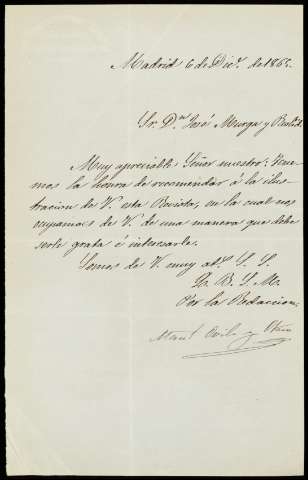 Madrid 6 de Dic.e de 186
Sr. D.n José Murga y
Muy apreciable Señor nuestro: Tene-
mos la honra de recomendar á la ilus-
tracion de V. esta Revista, en la cual nos
ocupamos de V. de una manera que debe
serle grata é interesarle.
Somos de V. muy at.s S. S.
Q. B. S. M.
Por la Redaccion,
Man.l Ovilo y